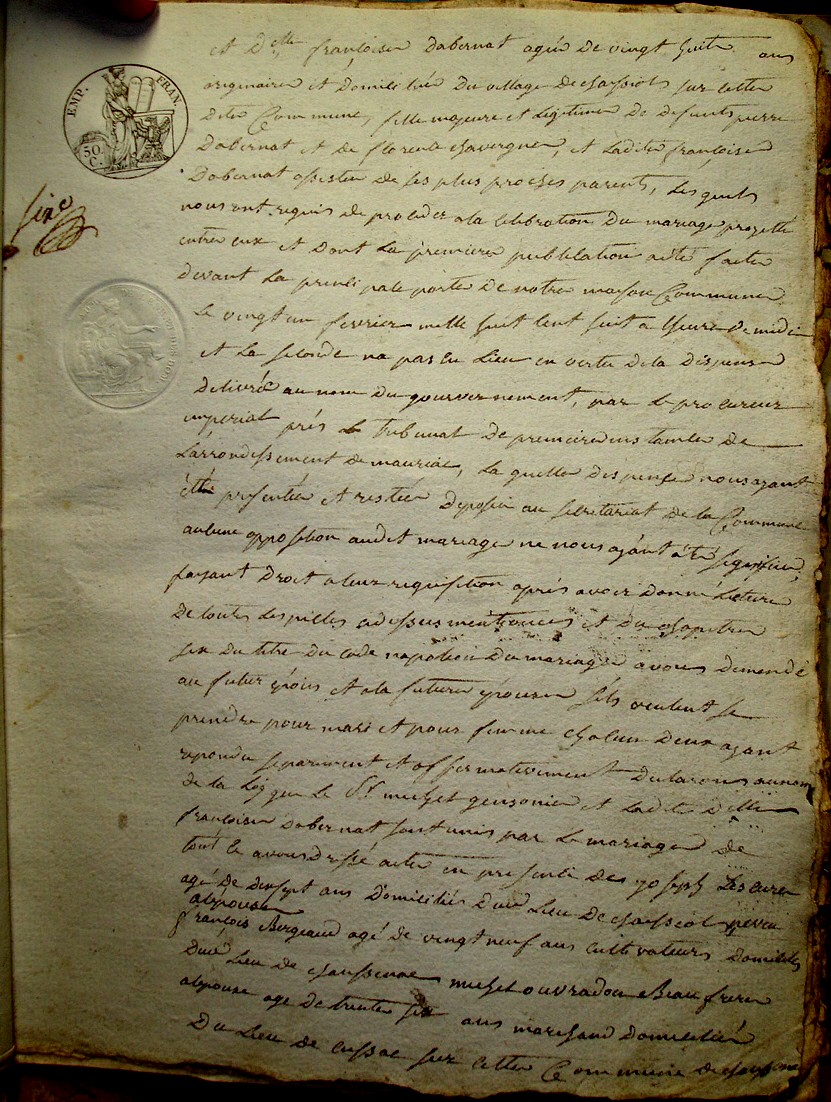 EMP. FRAN.
50 C.
sixe
et dlle françoise dabernat agée de vingt huit ans
originaire et domiciliée du village de chaussiols sur cette
dite Commune, fille majeure et légitime de defunts pierre
Dabernat et de florence chavergne, et ladite françoise
Dabernat assistée de ses plus proches parents, Les quels
nous ont requis de proceder a la Celebration du mariage projetté
entre eux et dont la premiere publication a été faite
devant la principale porte de notre maison Commune
Le vingt un fevrier mille huit cent huit a lheure de midi
et La seconde na pas eu Lieu en vertu de la dispense
delivrée au nom du gouvernement, par le procureur
imperial près le tribunal de premiere instance de
Larrondissement de mauriac, La quelle dispense nous ayant
été presentée et restée deposée au secretariat de la Commune
aucune opposition audit mariage ne nous ayant été signifiée,
faisant droit a leur requisition après avoir donné Lecture
de toutes Les pieces cidessus mentionnées et du chapitre
six du titre du code napoleon du mariage avons demandé
au futur epoux et a la future epouse sils veulent se
prendre pour mari et pour femme chacun deux ayant
repondu separement et affirmativement declarons au nom
de la Loy que Le Sr michel gensonie et Ladite dlle
françoise dabernat sont unis par Le mariage de
tout ce avons dressé acte en presence de joseph Lescure
agé de dixsept ans domiciliés dud. Lieu de chaussiol neveu
alepouse
françois Bergeaud agé de vingt neuf ans cultivateurs domiciliés
dud. Lieu de chaussenac michel ouvradou Beau frere
alepouse age de trente six ans marchand domicilié
du Lieu de cussac sur cette Commune de chaussenac